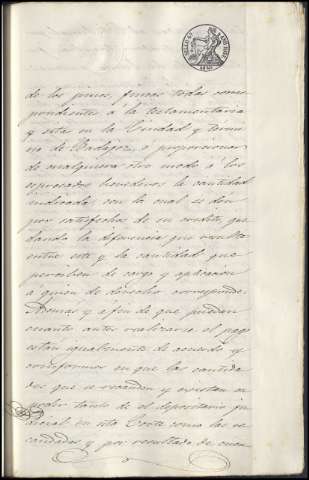 de los pinos, fincas todas corres
pondientes á la testamentaria
y sita en la Ciudad y termi
no de Badajoz, ó proporcionar
de cualquiera otro modo á los
espresados herederos la cantidad
indicada, con la cual se dén
por satisfechos de su credito, que
dando la diferencia que resulta
entre este y la cantidad que
perciben de cargo y aplicacion
á quien de derecho corresponde.
Ademas y á fin de que puedan
cuanto antes realizarse el pago
están igualmente de acuerdo y
conformes en que las cantida
des que se recauden y existan en
poder tanto de el depositario ju
dicial en esta Corte como las re
caudadas y por resultado de cuen